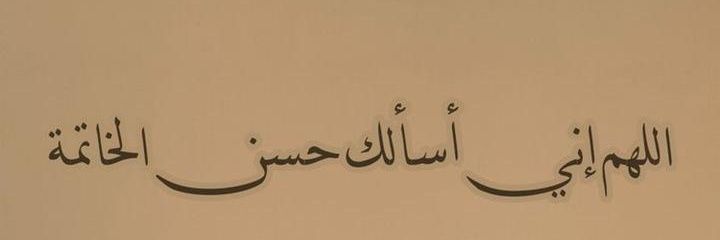 اللهم إني أسألك حسن الخاتمة